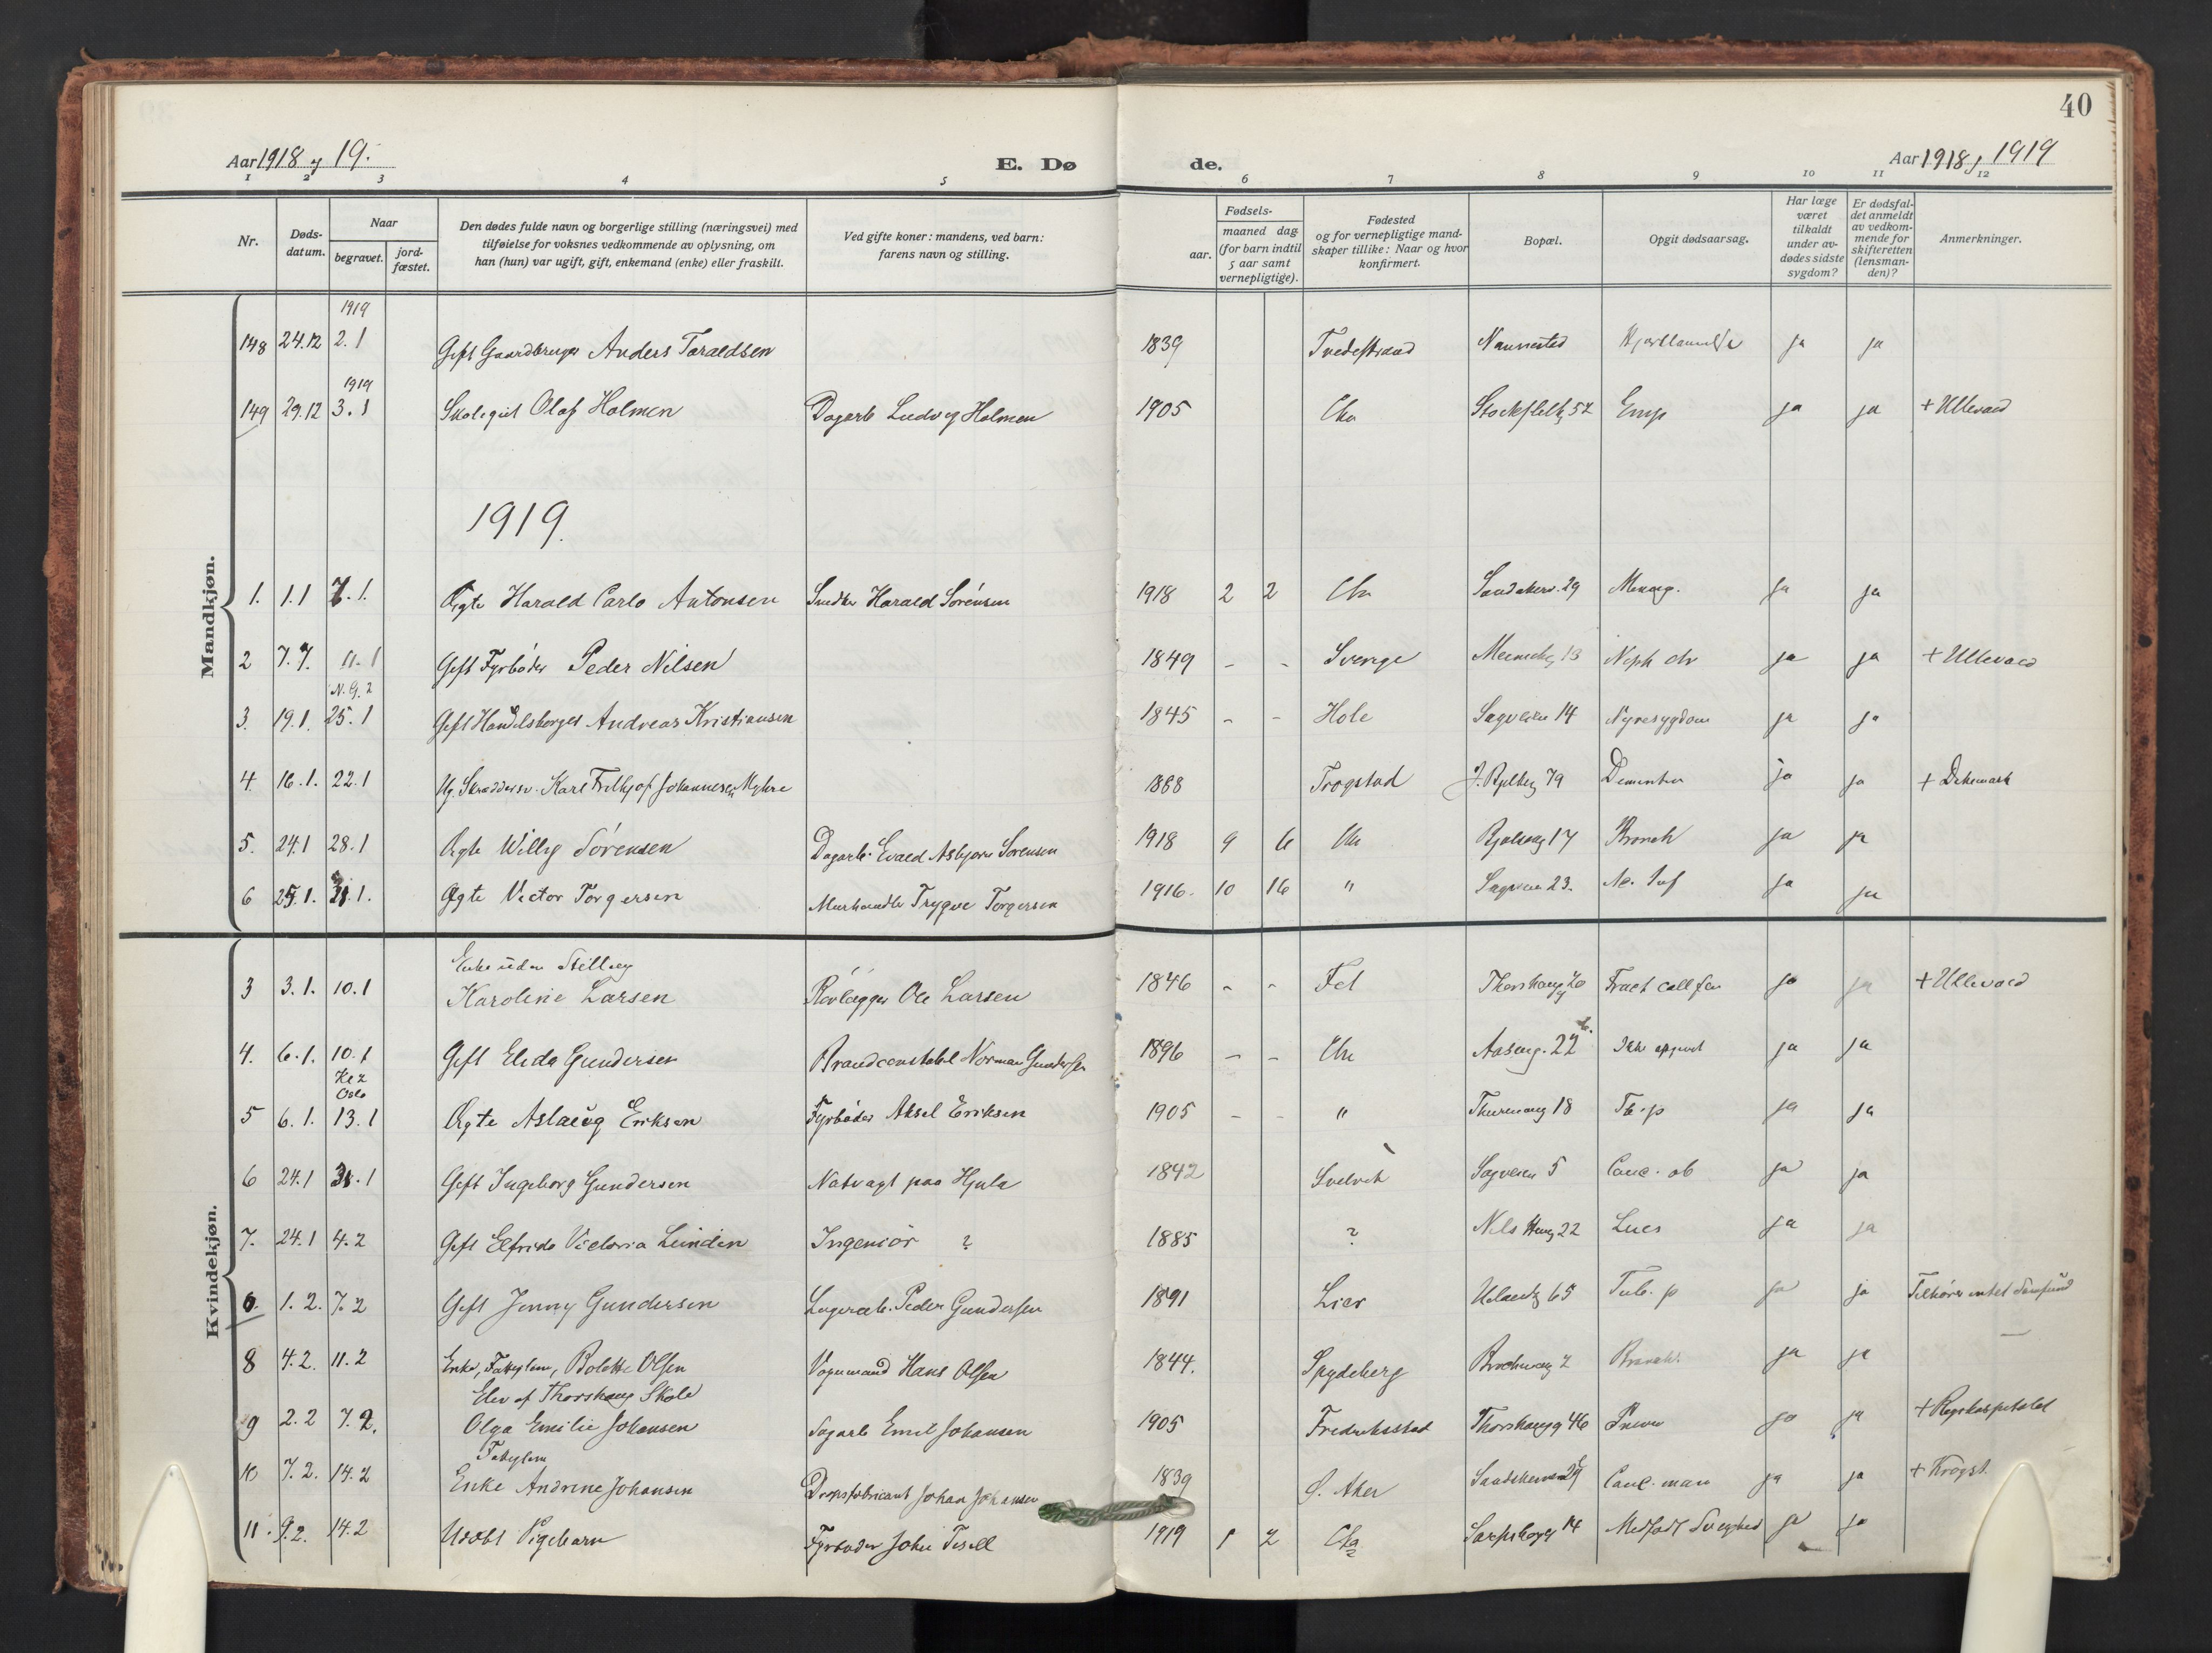 40
Aar 1918 og 19.
E. Dø
de.
Aar 1918, 1919
1 2 3 4 5 6 7 8 9 10 11 12
Nr.
Døds-
datum.
Naar
begravet.
jord-
fæstet.
Den dødes fulde navn og borgerlige stilling (næringsvei) med
tilføielse for voksnes vedkommende av oplysning, om
han (hun) var ugift, gift, enkemand (enke) eller fraskilt.
Ved gifte koner: mandens, ved barn:
farens navn og stilling.
Fødsels-
aar.
maaned dag
(for barn indtil
5 aar samt
vernepligtige).
Fødested
og for vernepligtige mand-
skaper tillike: Naar og hvor
konfirmert.
Bopæl.
Opgit dødsaarsag.
Har læge
været
tilkaldt
under av-
dødes sidste
sygdom?
Er dødsfal-
det anmeldt
av vedkom-
mende for
skifteretten
(lensman-
den)?
Anmerkninger.
Mandkjøn.
1919
148 24.12 2.1 Gift Gaardbruger Anders Taraldsen 1839 Tvedestrand Nannestad ja ja
1919
149 29.12 3.1 Skolegut Olaf Holmen Dagarb Ludvig Holmen 1905 Chra Stockfletg 52 Emp ja ja + Ullevaal
1919.
1. 1.1 7.1. Ægte Harald Carlo Antonsen Snedker Harald Sörensen 1918 2 2 Chr Sandakerv. 29 Mening. ja ja
2 7.7. 11.1 Gift Fyrböder Peder Nilsen 1849 - - Sverige 13 Neph chr ja ja + Ullevaal
N.G. 2
3. 19.1. 25.1 Gift Handelsborger Andreas Kristiansen 1845 - - Hole Sagveien 14 Nyresygdom ja ja
4. 16.1. 22.1 Ug. Skræddersv. Karl Frithjof Johannesen Myhre 1888 Trogstad 79 Dementia ja ja + Dikemark
5. 24.1 28.1 Ægte Willy Sörensen Dagarb. Evald Asbjørn Sorensen 1918 9 6 Chr 17 Bronch ja ja
6 25.1. 31.1. Ægte Victor Torgersen Murhandl Trygve Torgersen 1916. 10 16 " Sagveien 23. ja ja
Kvindekjøn.
Enke uden Stilling
3 3.1. 10.1 Karoline Larsen Rörlægger Ole Larsen 1846 - - Fet Thorshaugg Fract coll fem ja ja + Ullevaal
4. 6.1. 10.1 Gift Elida Gundersen Brandconstabel Norman Gundersen 1896 - - Chr Aaseng. 22 b. Ikke opgivet ja ja
Kl 2
Oslo
5 6.1. 13.1 Ægte Aslaug Eriksen Fyrböder Aksel Eriksen 1905 - - " 18 Tb. p ja ja
6 24.1 31.1 Gift Ingeborg Gundersen Natvagt paa Hjula 1842 Svelvik Sagveien 5 Canc. ja ja
7. 24.1 4.2 Gift Elfrida Victoria Lundin Ingeniör ? 1885 ? Nils 22 Lues ja ja
6. 1.2. 7.2 Gift Jenny Gundersen Lagerarb. Peder Gundersen 1891 Lier Uelandsg 65 Tub. p ja ja Tilhører intet Samfund
8 4.2. 11.2 Enke, Fattiglem, Bolette Olsen Vognmand Hans Olsen 1844. Spydeberg 2 Bronch. ja ja
Elev af Thorshaug Skole
9 2.2 7.2. Olga Emilie Johansen Dagarb Emil Johansen 1905 Fredrikstad Thorshaugg 46 Pneum ja ja + Rigshospitalet
Fattiglem
10 7.2. 14.2 Enke Andrine Johansen Dropsfabricant Johan Johansen 1839 Ø. Aker 29 Canc. mam ja ja + Krogst.
11. 9.2. 14.2 Udöbt Pigebarn Fyrböder John Tisell 1919 1 2 Chra Sarpsborgg 14 Medfødt Svaghed ja ja